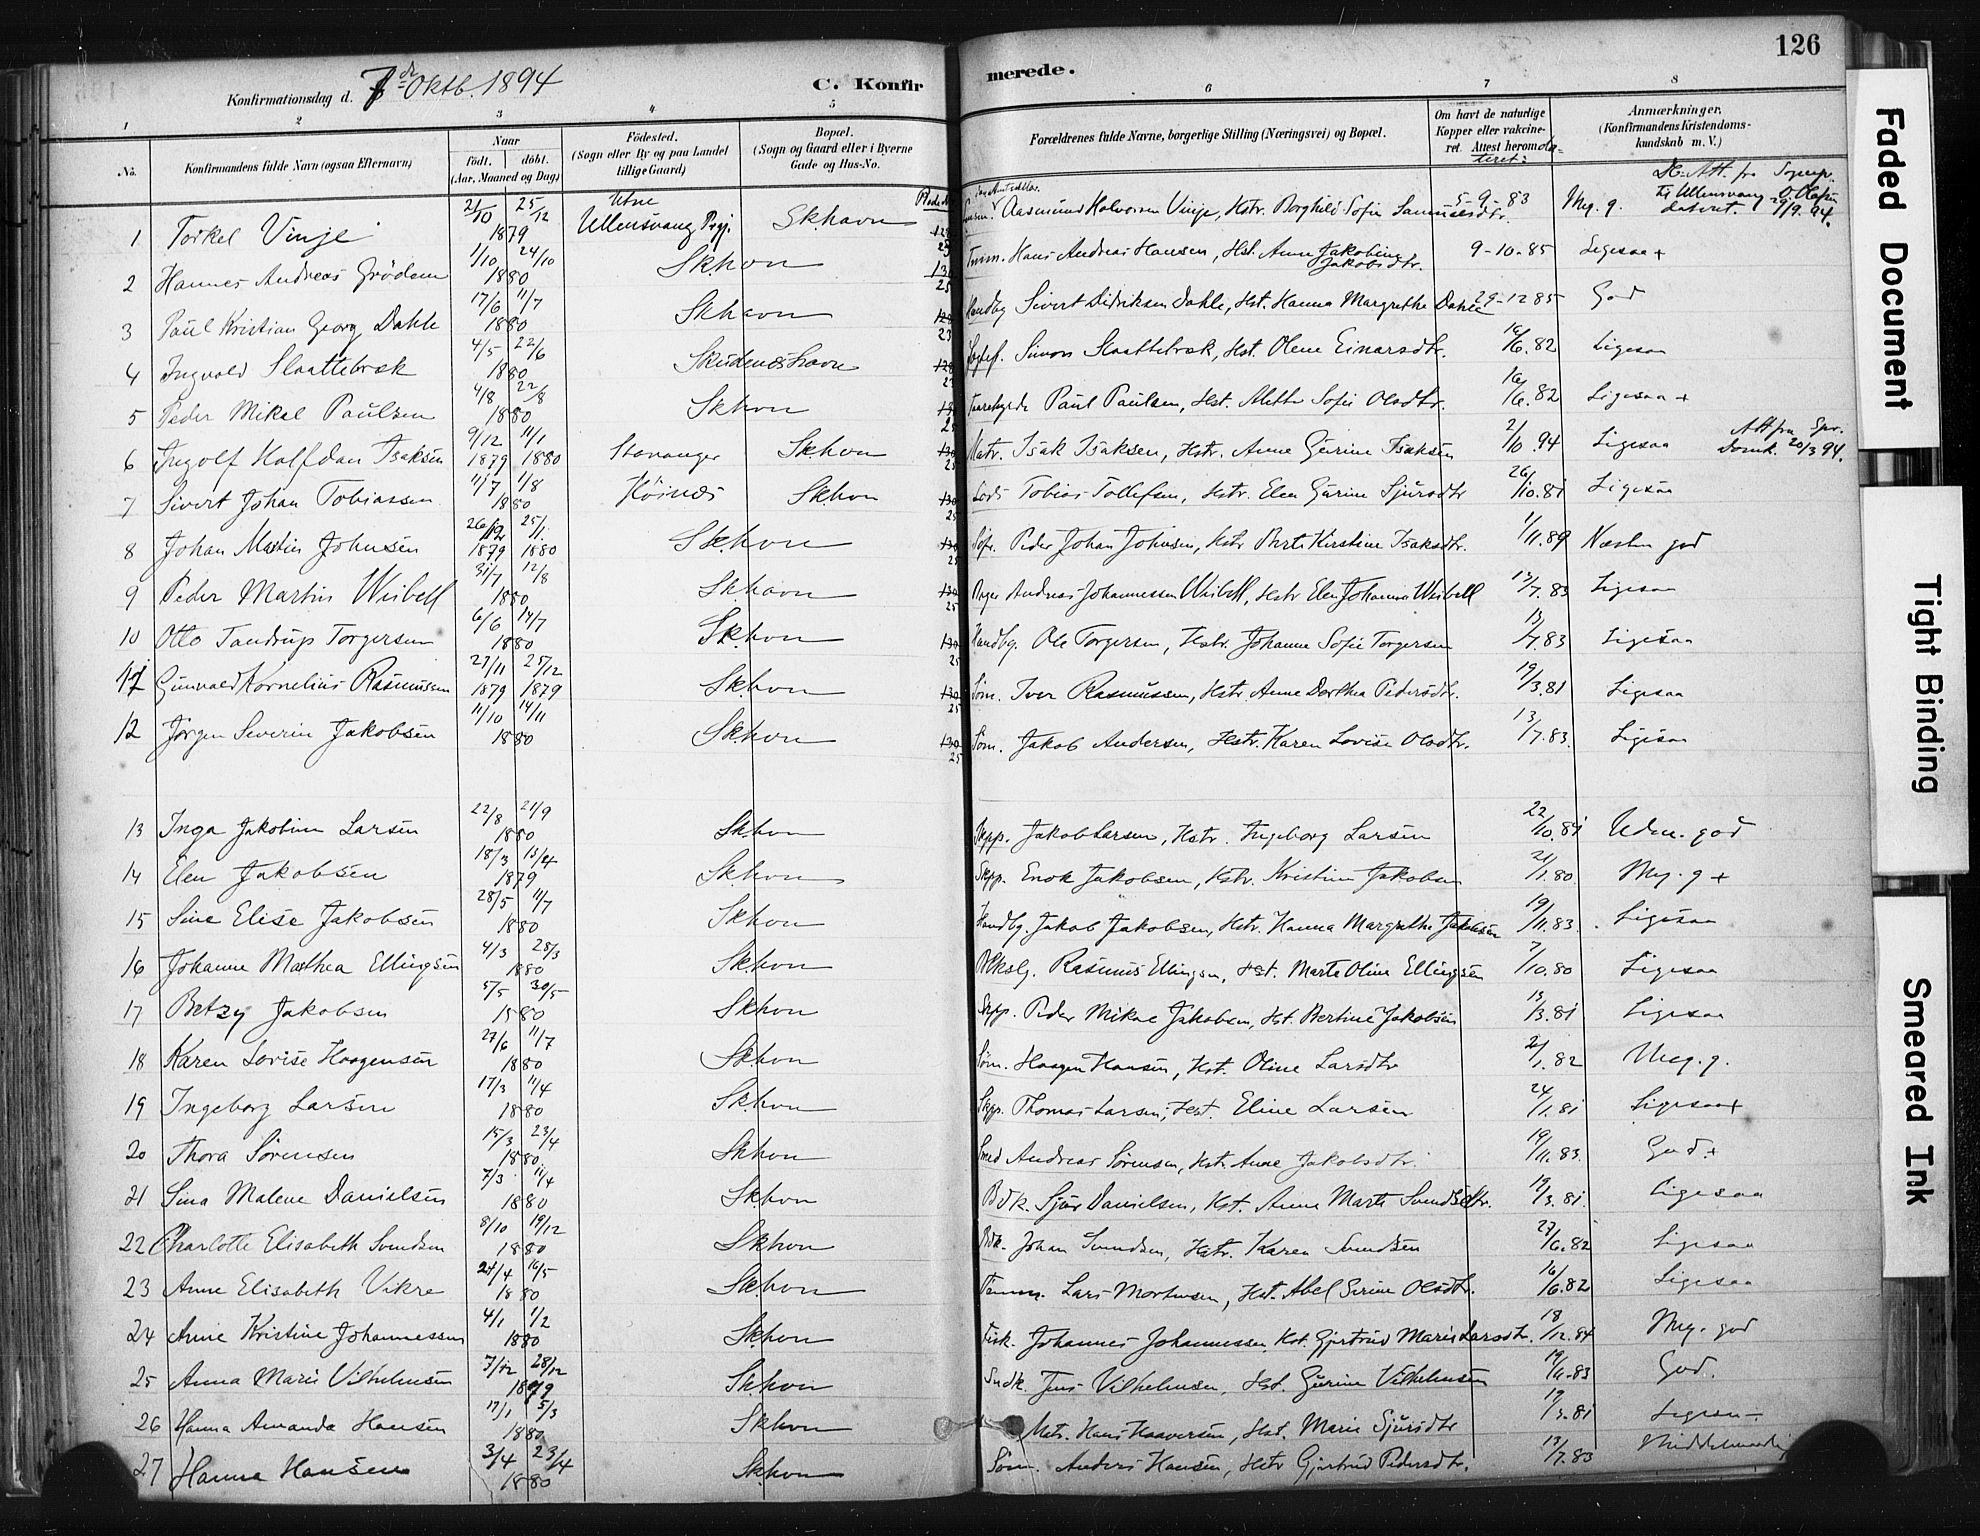 126
Konfirmationsdag d. 7de Oktb. 1894
C. Konfirmerede.
1 2 3 4 5 6 7 8
No.
Konfirmandens fulde Navn (ogsaa Efternavn)
Naar
født. døbt.
(Aar, Maaned og Dag)
Fødested.
(Sogn eller By og paa Landet tillige Gaard)
Bopæl.
(Sogn og Gaard eller i Byerne Gade og Hus-No.
Forældrenes fulde Navne, borgerlige Stilling (Næringsvei) og Bopæl.
Om havt de naturlige Kopper eller vakcineret. Attest herom dateret:
Anmærkninger.
(Konfirmandens Kristendomskundskab m. V.)
1 Torkel Vinje 21/10 25/12 1879 Utne Ullensvang Pgj. Skhavn Aasmund Halvorsen Vinje, Hstr. Borghild Sofie Samuelsdtr. 5-9-83 Meg. g. Ullensvang dateret 94.
2 Hannes Andreas Grødem 1/10 24/10 1880 Skhvn Hans Andreas Hansen, Hst. Anne Jakobine Jakobsdtr. 9-10-85 Ligesaa +
3 Paul Kristian Georg Dahle 17/6 11/7 1880 Skhavn Handlg Sivert Didriksen Dahle, Hst. Hanna Margrethe Dahle 29-12 85 God
4 Ingvald Slaattebræk 4/5 22/6 1880 Skudeneshavn Simon Slaattebræk, Hst. Olene Einarsdtr. 16/6.82 Ligesaa
5 Peder Mikal Paulsen 4/8 22/8 1880 Skhvn Paul Paulsen, Hst. Alette Sofie Olsdtr. 16/6.82 Ligesaa +
6 Ingolf Halfdan Isaksen 9/12 1879 11/1 1880 Stavanger Skhvn Matr. Isak Isaksen, Hstr. Anne Gurine Isaksen 2/10.94 Ligesaa Att fra Spr. Domk. 20/3 94.
7 Sivert Johan Tobiassen 11/7 1/8 1880 Høines Skhvn Lods Tobias Tollefsen, Hstr. Elen Gurine Sjursdtr 26/10.81 Ligesaa
8 Johan Martin Johnsen 26/12 1879 25/1 1880 Skhvn Peder Johan Johnsen, Hstr Berte Kirstine Isaksdtr. 1/11.89 Næsten god
9 Peder Martin Wiibell 31/7 12/8 1880 Skhavn Andreas Johannessen Wiibell, Hstr Elen Johanna Wiibell 13/7.83 Ligesaa
10 Otto Tandrup Torgersen 6/6 14/7 1880 Skhvn Handlg. Ole Torgersen, Hstr. Johanne Sofie Torgersen 13/7.83 Ligesaa
11 Gunvald Kornelius Rasmussen 27/11 1879 25/12 1879 Skhvn Søm. Iver Rasmussen, Hstr Anne Dorthea Pedersdtr. 19/3.81 Ligesaa
12 Jørgen Severin Jakobsen 11/10 14/11 1880 Skhvn Søm. Jakob Andersen, Hstr. Karen Lovise Olsdtr. 13/7.83. Ligesaa
13 Inga Jakobine Larsen 22/8 21/9 1880 Skhvn Skpp. Jakob Larsen, Hstr. Ingeborg Larsen 22/10.81 Udm. god
14 Elen Jakobsen 18/3 13/4 1879 Skhvn Skpp. Enok Jakobsen, Hstr. Kristine Jakobsen 21/1.80 Meg. g +
15 Sine Elise Jakobsen 28/5 11/7 1880 Skhvn Handlg. Jakob Jakobsen, Hstr. Hanna Margrethe Jakobsen 19/11.83. Ligesaa
16 Johanne Mathea Ellingsen 4/3 28/3 1880 Skhvn Rasmus Ellingsen, Hst. Marte Oline Ellingsen 7/10.80 Ligesaa
17 Betzy Jakobsen 5/5 30/5 1880 Skhvn Skpp. Peder Mikal Jakobsen, Hst. Bertine Jakobsen 13/3.81 Ligesaa
18 Karen Lovise Haagensen 27/6 11/7 1880 Skhvn Søm. Haagen Hansen, Hst. Oline Larsdtr 21/1.82 Meg. g.
19 Ingeborg Larsen 17/3 11/4 1880 Skhvn Skpp. Thomas Larsen, Hst. Eline Larsen 24/1.81 Ligesaa +
20 Thora Sørensen 15/3 23/4 1880 Skhvn Smed Andreas Sørensen, Hstr. Anne Jakobsdtr. 19/11.83. God +
21 Sina Malene Danielsen 7/3 11/4 1880 Skhvn Bdk. Sjur Danielsen, Hst. Anne Marte Svendsdtr. 19/3.81. Ligesaa
22 Charlotte Elisabeth Svendsen 8/10 19/12 1880 Skhvn Bdk. Johan Svendsen, Hstr. Karen Svendsen 27/6.82 Ligesaa
23 Anne Elisabeth Vikre 24/4 16/5 1880 Skhvn Tømm. Lars Mortensen, Hst. Abel Serine Olsdtr. 16/6.82 Ligesaa
24 Anne Kristine Johannessen 4/1 1/2 1880 Skhvn Fisk. Johannes Johannessen, Hst. Gjertrud Marie Larsdtr. 18/12.84 Meg. god
25 Anna Marie Vilhelmsen 7/12 28/12 1879 Skhvn Sndk. Jens Vilhelmsen, Hst. Gurine Vilhelmsen 19/11-83 God.
26 Hanna Amanda Hansen 17/1 5/3 1880 Skhvn Matr. Hans Haaversen, Hst. Marie Sjursdtr 19/3.81 Ligesaa
27 Hanna Hansen 3/4 23/4 1880 Skhvn Søm. Anders Hansen, Hstr Gjertrud Pedersdtr. 13/7.83 Middelmaadig
Faded Document
Tight Binding
Smeared Ink